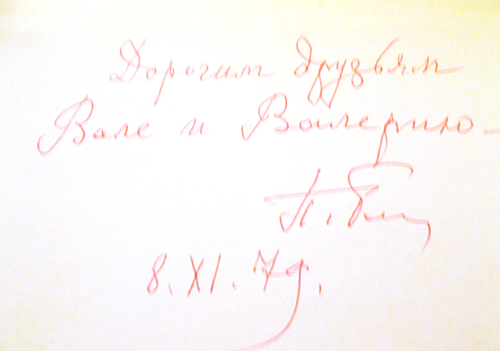 Дорогим друзьям
Вале и Валерию –
П.
8.XI.79.